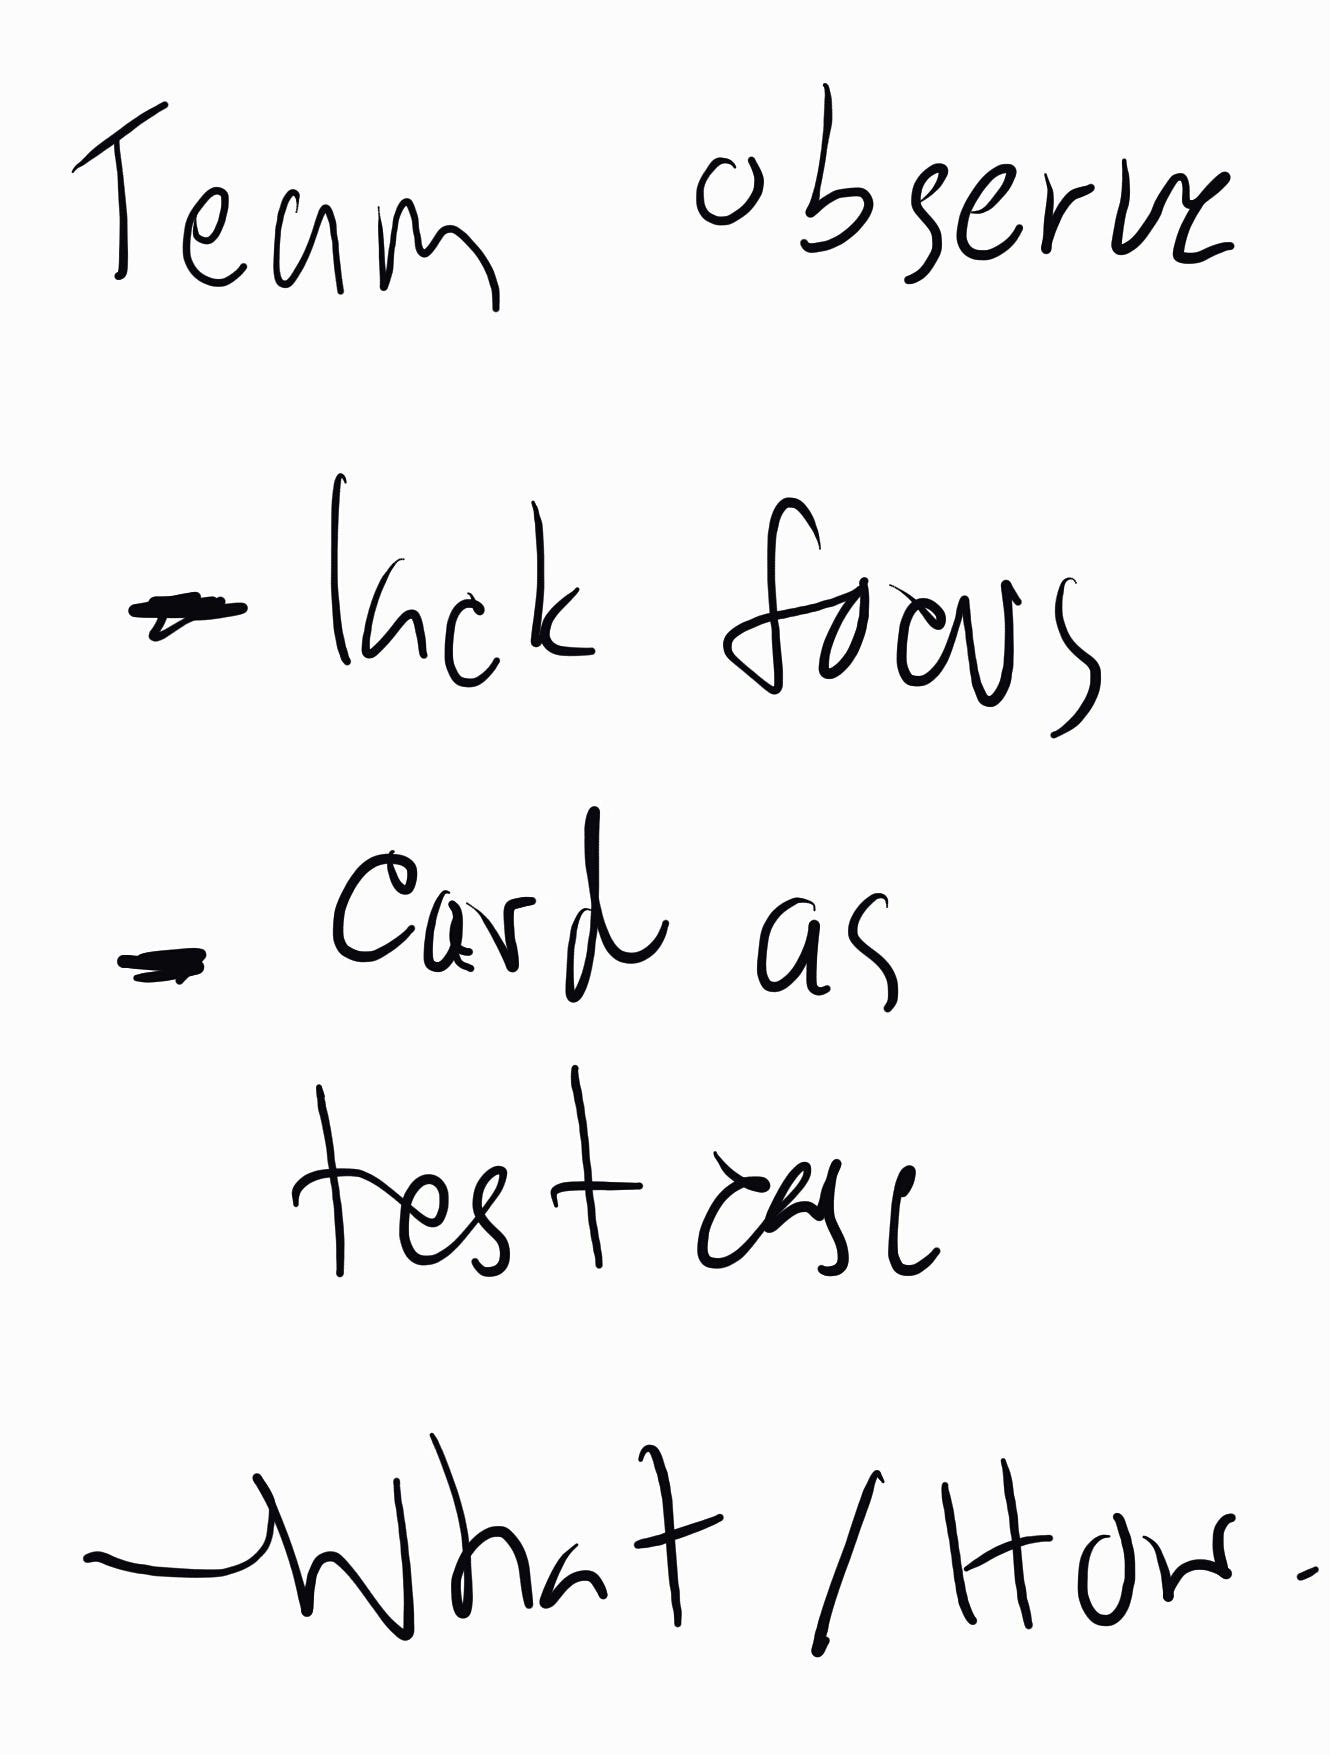 Team observe
- lack focus
- Card as
test case
- What / How.